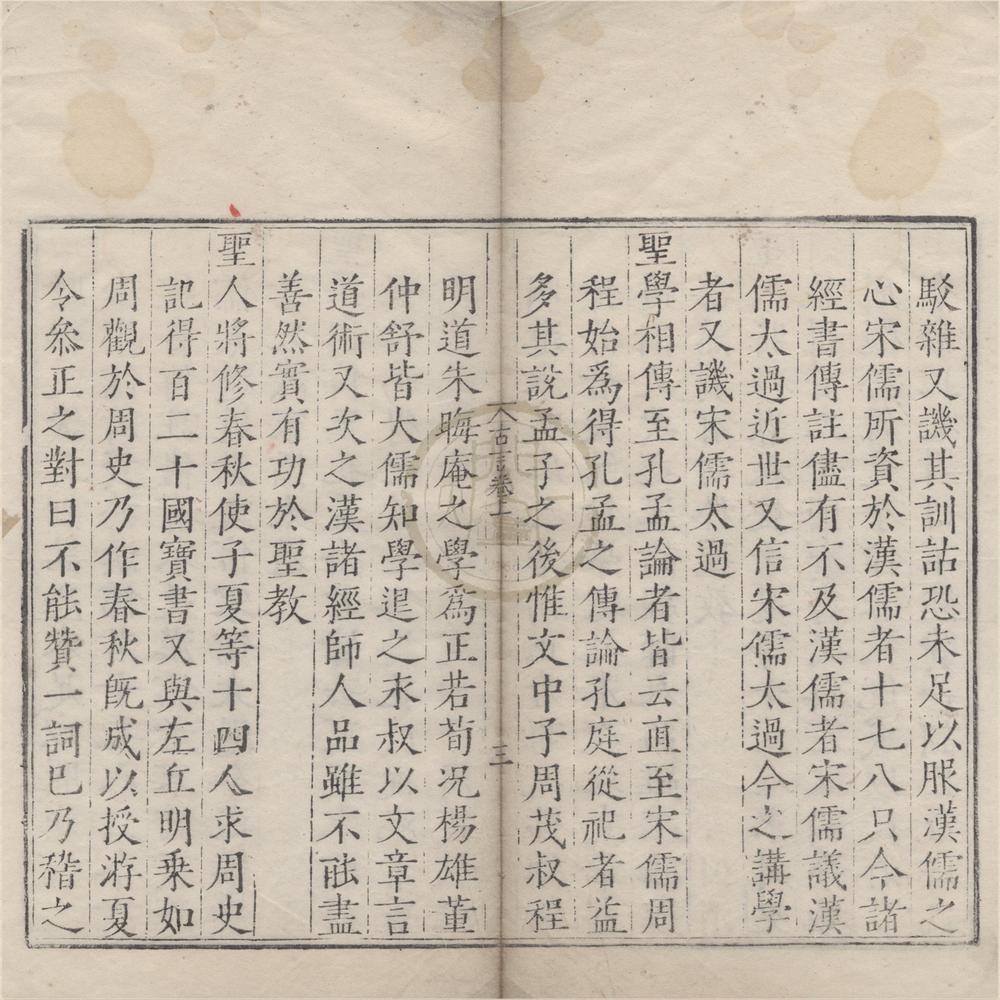 駁雜又譏其訓詁恐未足以服漢儒之
心宋儒所資於漢儒者十七八只今諸
經書傳註儘有不及漢儒者宋儒議漢
儒太過近世又信宋儒太過今之講學
者又譏宋儒太過
聖學相傳至孔孟論者皆云直至宋儒周
程始爲得孔孟之傳論孔庭從祀者益
多其說孟子之後惟文中子周茂叔程
古言卷上
三
明道朱晦庵之學爲正若荀况楊雄董
仲舒皆大儒知學退之永叔以文章言
道術又次之漢諸經師人品雖不能盡
善然實有功於聖教
聖人將修春秋使子夏等十四人求周史
記得百二十國寶書又與左丘明乗如
周觀於周史乃作春秋旣成以授游夏
令叅正之對曰不能贊一詞巳乃稽之